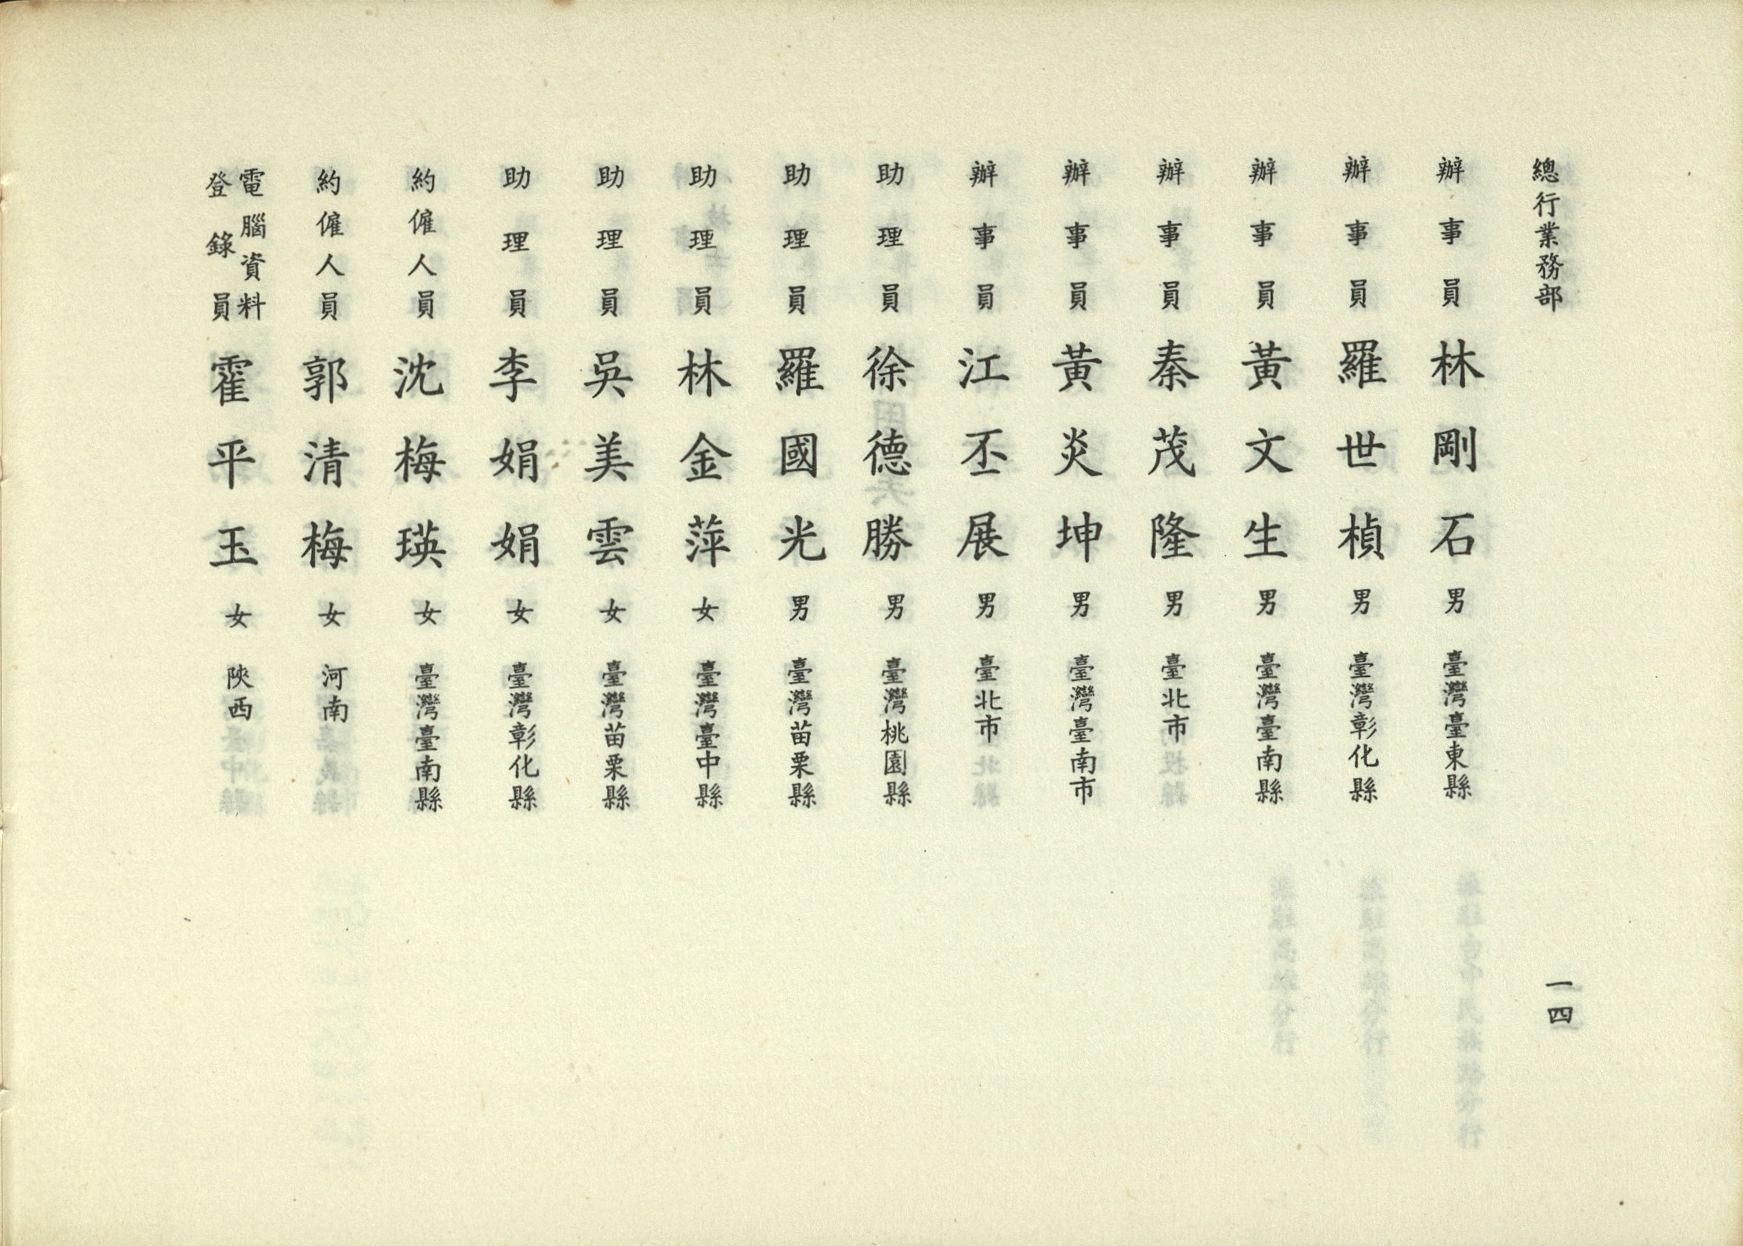 總行業務部
一四
辦事員 林剛石 男 臺灣臺東縣
辦事員 羅世楨 男 臺灣彰化縣
辦事員 黃文生 男 臺灣臺南縣
辦事員 秦茂隆 男 臺北市
辦事員 黃炎坤 男 臺灣臺南市
辦事員 江丕展 男 臺北市
助理員 徐德勝 男 臺灣桃園縣
助理員 羅國光 男 臺灣苗栗縣
助理員 林金萍 女 臺灣臺中縣
助理員 吳美雲 女 臺灣苗栗縣
助理員 李娟娟 女 臺灣彰化縣
約僱人員 沈梅瑛 女 臺灣臺南縣
約僱人員 郭清梅 女 河南
電腦資料登錄員 霍平玉 女 陝西